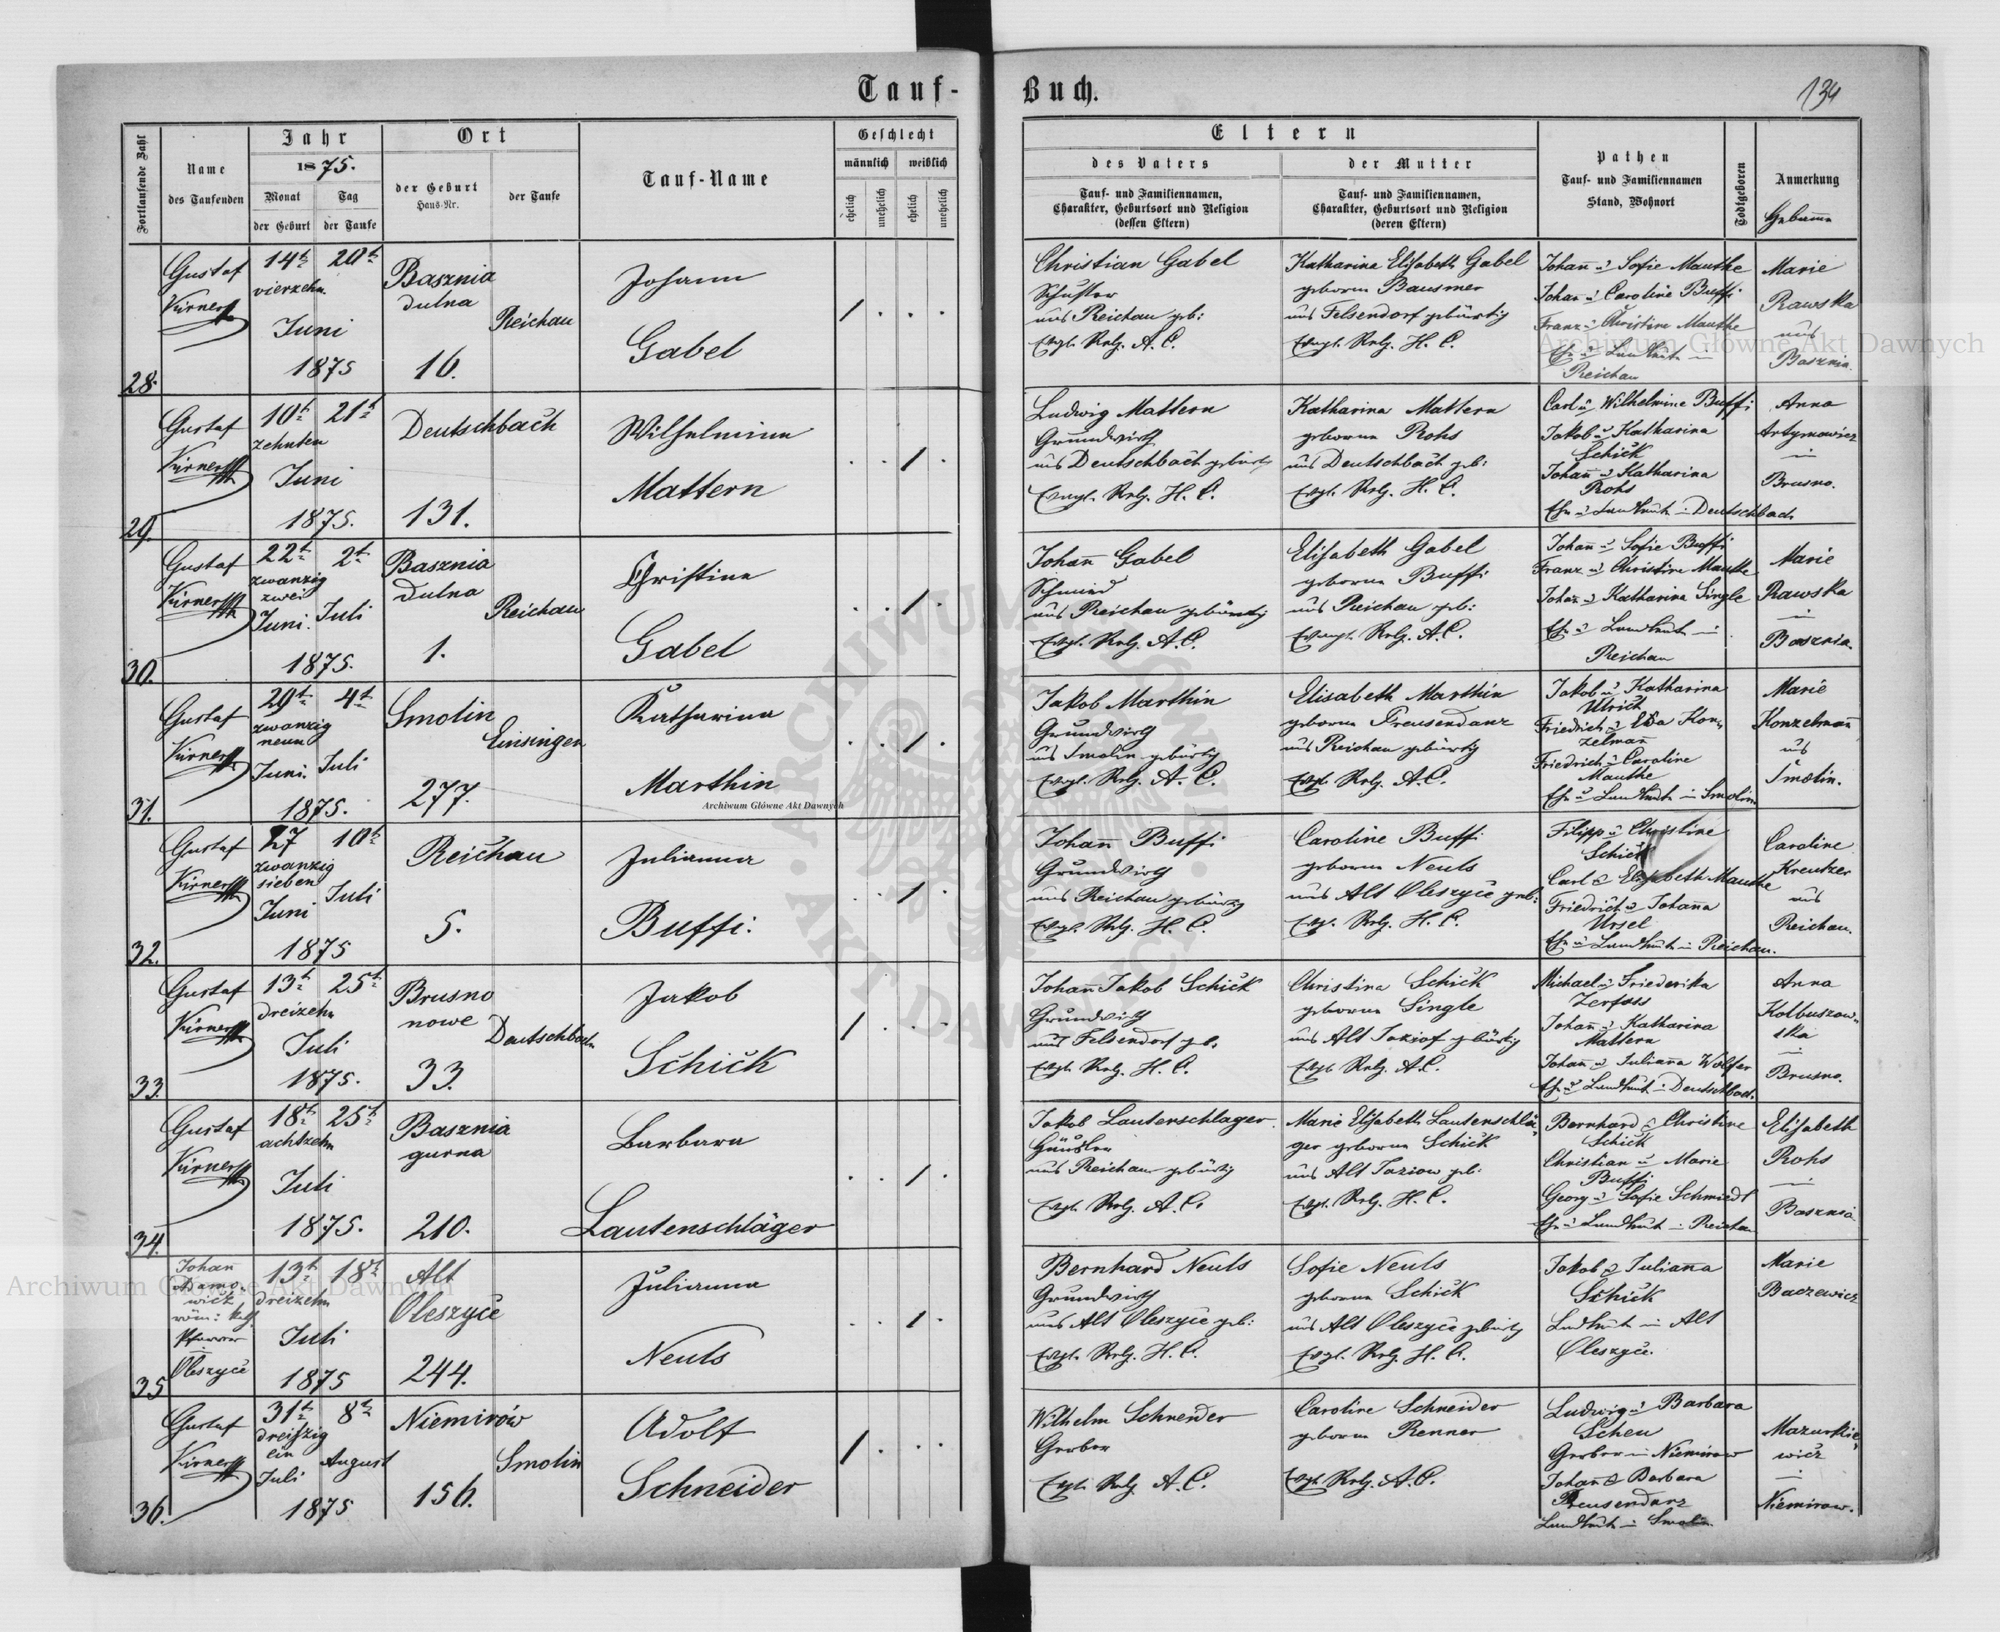 Tauf-Buch.
134
Fortlaufende Zahl
Name
des Taufenden
Jahr
1875.
Monat
Tag
der Geburt
der Taufe
Ort
der Geburt
Haus-Nr.
der Taufe
Tauf-Name
Geschlecht
männlich
weiblich
ehelich
unehelich
ehelich
unehelich
Eltern
des Vaters
Tauf- und Familiennamen,
Charakter, Geburtsort und Religion
(dessen Eltern)
der Mutter
Tauf- und Familiennamen,
Charakter, Geburtsort und Religion
(deren Eltern)
Pathen
Tauf- und Familiennamen
Stand, Wohnort
Todtgeboren
Anmerkung
Hebamme
28.
Gustaf
Kirner
14t 20t
vierzehn
Juni
1875
Basznia
dulna
16.
Reichau
Johann
Gabel
1 . . .
Christian Gabel
Schuster
aus Reichau geb:
Evgl. Relg. A. C.
Katharina Elisabeth Gabel
geborne Bausmer
aus Felsendorf gebürtig
Evngl. Relg. H. C.
Johañ u Sofie Mauthe
Johañ u Caroline Buffi
Franz u Christine Mauthe
Reichau
Marie
Rawska
aus
Basznia.
29.
Gustaf
Kirner
10t 21t
zehnten
Juni
1875.
Deutschbach
131.
Wilhelmine
Mattern
. . 1 .
Ludwig Mattern
Grundwirth
aus Deutschbach gebürtig
Evngl. Relg. H. C.
Katharina Mattern
geborne Rohs
aus Deutschbach geb:
Evgl. Relg. H. C.
Carl u Wilhelmine Buffi
Jakob u Katharina
Schick
Johañ u Katharina
Rohs
Deutschbach
Anna
Artymowicz
in
Brusno.
30.
Gustaf
Kirner
22t 2t
zwanzig
zwei
Juni. Juli
1875.
Basznia
dulna
1.
Reichau
Christine
Gabel
. . 1 .
Johañ Gabel
Schmied
aus Reichau gebürtig
Evgl. Relg. A. C.
Elisabeth Gabel
geborne Buffi
aus Reichau geb:
Evngl. Relg. A. C.
Johañ u Sofie Buffi
Franz u Christine Mauthe
Johañ u Katharina Single
Reichau
Marie
Rawska
in
Basznia.
31.
Gustaf
Kirner
29t 4t
zwanzig
neun
Juni. Juli
1875.
Smolin
277.
Einsingen
Katharina
Marthin
. . 1 .
Jakob Marthin
Grundwirth
aus Smolin gebürtig
Evngl. Relg. A. C.
Elisabeth Marthin
geborne Preusendanz
aus Reichau gebürtig
Evgl. Relg. A. C.
Jakob u Katharina
Ulrich
Friedrich u Eva Kon=
zelmañ
Friedrich u Caroline
Mauthe
Smolin
Marie
Konzelmañ
aus
Smolin.
32.
Gustaf
Kirner
27 10t
zwanzig
sieben
Juni Juli
1875
Reichau
5.
Julianna
Buffi.
. . 1 .
Johañ Buffi
Grundwirth
aus Reichau gebürtig
Evgl. Relg. H. C.
Caroline Buffi
geborne Neuls
aus Alt Oleszyce geb:
Evg. Relg. H. C.
Filipp u Christine
Schick
Carl u Elisabeth Mauthe
Friedrich u Johaña
Ursel
Reichau.
Caroline
Kreutzer
aus
Reichau.
33.
Gustaf
Kirner
13t 25t
dreizehn
Juli
1875.
Brusno
nowe
33.
Deutschbach
Jakob
Schick
1 . . .
Johañ Jakob Schick
Grundwirth
aus Felsendorf geb.
Evgl. Relg. H. C.
Christina Schick
geborne Single
aus Alt Jaziof gebürtig
Evgl. Relg. A. C.
Michael u Friederika
Zerfass
Johañ u Katharina
Mattern
Johañ u Juliaña Wölfer
Deutschbach.
Anna
Kolbuszow=
ska
in
Brusno.
34.
Gustaf
Kirner
18t 25t
achtzehn
Juli
1875.
Basznia
gurna
210.
Barbara
Lautenschläger
. . 1 .
Jakob Lautenschlager
Häusler
aus Reichau gebürtig
Evgl. Relg. A. C.
Marie Elisabeth Lautenschlä=
ger geborne Schick
aus Alt Jaziow geb:
Evgl. Relg. H. C.
Bernhard u Christine
Schick
Christian u Marie
Buffi
Georg u Sofie Schmiedt
Reichau
Elisabeth
Rohs
in
Basznia
35
Johañ
röm: kath
Pfarrer
in
Oleszyce
13t 18t
dreizehn
Juli
1875
Alt
Oleszyce
244.
Julianna
Neuls
. . 1 .
Bernhard Neuls
Grundwirth
aus Alt Oleszyce geb:
Evgl. Relg. H. C.
Sofie Neuls
geborne Schick
aus Alt Oleszyce gebürtig
Evgl. Relg. H. C.
Jakob u Juliaña
Schick
Landleute in Alt
Oleszyce.
Marie
Baczewicz
36.
Gustaf
Kirner
31t 8t
dreiszig
ein
Juli August
1875
Niemirów
156.
Smolin
Adolf
Schneider
1 . . .
Wilhelm Schneider
Gerber
Evgl. Relg. A. C.
Caroline Schneider
geborne Renner
Evgl. Relg. A. C.
Ludwig u Barbara
Scheu
Gerber in Niemirow
Johañ u Barbara
Preusendanz
Landleute in Smolin.
Mazurkie=
wicz
in
Niemirow.
Archiwum Główne Akt Dawnych